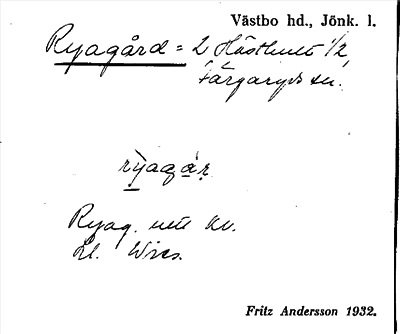 Västbo hd., Jönk. l.
Ryagård = 2 Hästhult 1/2,
Färgaryds sn.
rỳaga̠ṛ́
Ryag. utt av.
Kl. Wies.
Fritz Andersson 1932.